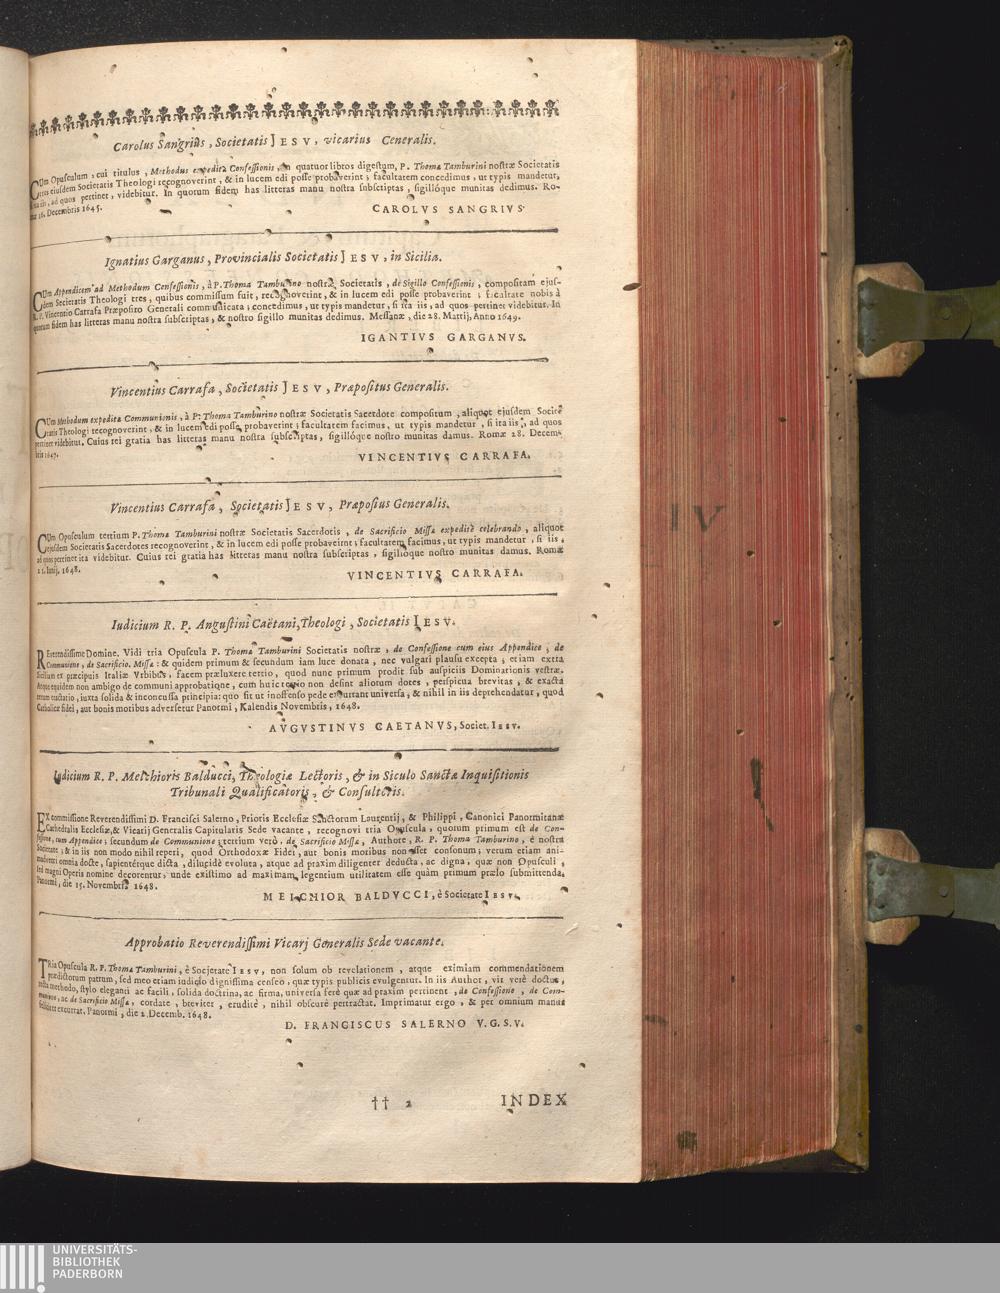 Carolus Sangrius, Societatis JESV, vicarius Generalis.
CUm Opusculum, cui titulus, Methodus expedita Confessionis, in quatuor libros digestum, P. Thomæ Tamburini nostræ Societatis
tres eiusdem Societatis Theologi recognoverint, & in lucem edi posse probaverint; facultatem concedimus, ut typis mandetur,
si ita iis, ad quos pertinet, videbitur. In quorum fidem has litteras manu nostra subscriptas, sigillóque munitas dedimus. Ro-
mæ 16. Decembris 1645.
CAROLVS SANGRIVS.
Ignatius Garganus, Provincialis Societatis JESV, in Sicilia.
CUm Appendicem ad Methodum Confessionis, à P. Thoma Tamburino nostræ Societatis, de Sigillo Confessionis, compositam ejus-
dem Societatis Theologi tres, quibus commissum fuit, recognoverint, & in lucem edi posse probaverint; facultate nobis à
R. P. Vincentio Carrafa Præposito Generali communicata; concedimus, ut typis mandetur, si ita iis, ad quos pertinet videbitur. In
quorum fidem has litteras manu nostra subscriptas, & nostro sigillo munitas dedimus. Messanæ, die 28. Martij, Anno 1649.
IGANTIVS GARGANVS.
Vincentius Carrafa, Societatis JESV, Præpositus Generalis.
CUm Methodum expeditæ Communionis, à P. Thoma Tamburino nostræ Societatis Sacerdote compositum, aliquot ejusdem Socie-
tatis Theologi recognoverint, & in lucem edi posse probaverint; facultatem facimus, ut typis mandetur, si ita iis, ad quos
pertinet videbitur. Cuius rei gratia has litteras manu nostra subscriptas, sigillóque nostro munitas damus. Romæ 28. Decem-
bris 1647.
VINCENTIVS CARRAFA.
Vincentius Carrafa, Societatis JESV, Præposius Generalis.
CUm Opusculum tertium P. Thomæ Tamburini nostræ Societatis Sacerdotis, de Sacrificio Missæ expeditè celebrando, aliquot
ejusdem Societatis Sacerdotes recognoverint, & in lucem edi posse probaverint; facultatem facimus, ut typis mandetur, si iis,
ad quos pertinet ita videbitur. Cuius rei gratia has litteras manu nostra subscriptas, sigillóque nostro munitas damus. Romæ
21. Iunij. 1648.
VINCENTIVS CARRAFA.
Iudicium R. P. Augustini Caëtani, Theologi, Societatis IESV.
REverendissime Domine. Vidi tria Opuscula P. Thomæ Tamburini Societatis nostræ, de Confessione cum eius Appendice, de
Communione, de Sacrificio Missæ: & quidem primum & secundum iam luce donata, nec vulgari plausu excepta, etiam extra
Siciliam ex præcipuis Italiæ Vrbibus, facem præluxere tertio, quod nunc primum prodit sub auspiciis Dominationis vestræ.
Atque equidem non ambigo de communi approbatione, cum huic tertio non desint aliorum dotes, perspicua brevitas, & exacta
rerum tractatio, iuxta solida & inconcussa principia: quo fit ut inoffenso pede excurrant universa, & nihil in iis deprehendatur, quod
Catholicæ fidei, aut bonis moribus adversetur Panormi, Kalendis Novembris, 1648.
AVGVSTINVS CAETANVS, Societ. IESV.
Iudicium R. P. Melchioris Balducci, Theologiæ Lectoris, & in Siculo Sanctæ Inquisitionis
Tribunali Qualificatoris, & Consultoris.
EX commissione Reverendissimi D. Francisci Salerno, Prioris Ecclesiæ Sanctorum Lourentij, & Philippi, Canonici Panormitanæ
Cathedralis Ecclesiæ, & Vicarij Generalis Capitularis Sede vacante, recognovi tria Opuscula, quorum primum est de Con-
fessione, cum Appendice; secundum de Communione; tertium verò, de Sacrificio Missæ, Authore, R. P. Thoma Tamburino, è nostra
Societate; & in iis non modo nihil reperi, quod Orthodoxæ Fidei, aut bonis moribus non esset consonum; verum etiam ani-
madverti omnia docte, sapientérque dicta, dilucidè evoluta, atque ad praxim diligenter deducta, ac digna, quæ non Opusculi,
sed magni Operis nomine decorentur, unde existimo ad maximam legentium utilitatem esse quàm primum prælo submittenda.
Panormi, die 15. Novembris 1648.
MELCHIOR BALDVCCI, è Societate IESV.
Approbatio Reverendissimi Vicarj Generalis Sede vacante.
TRia Opuscula R. P. Thomæ Tamburini, è Societate IESV, non solum ob revelationem, atque eximiam commendationem
prædictorum patrum, sed meo etiam iudicio dignissima censeo, quæ typis publicis evulgentur. In iis Author, vir verè doctus,
recta methodo, stylo eleganti ac facili, solida doctrina, ac firma, universa ferè quæ ad praxim pertinent, de Confessione, de Com-
munione, ac de Sacrificio Missæ, cordate, breviter, eruditè, nihil obscurè pertractat. Imprimatur ergo, & per omnium manus
feliciter excurrat. Panormi, die 2. Decemb. 1648.
D. FRANCISCUS SALERNO V.G.S.V.
†† 2 INDEX
UNIVERSITÄTS-
BIBLIOTHEK
PADERBORN